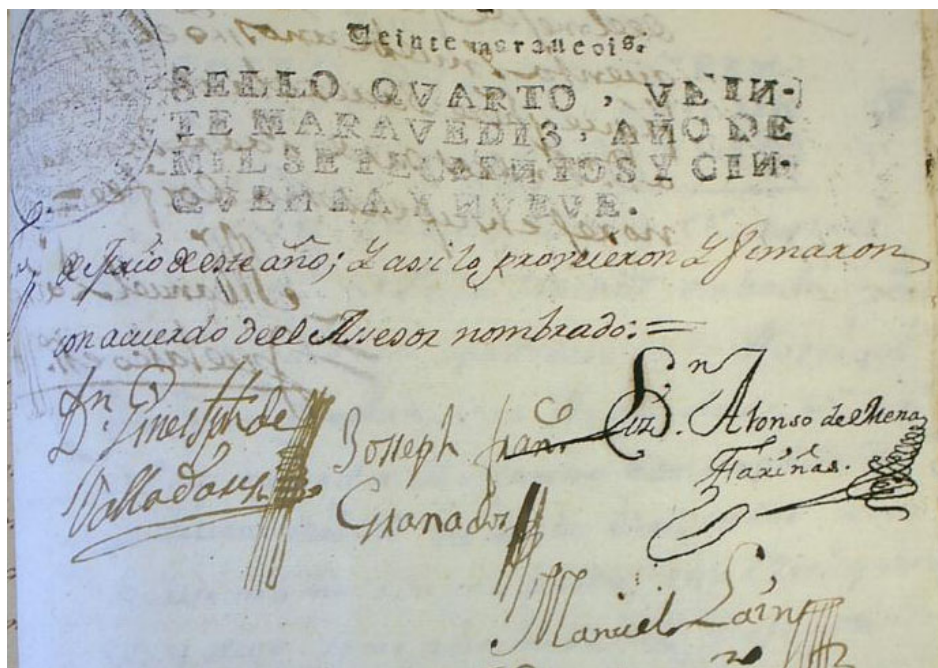 Veinte maravedis.
SELLO QVARTO, VEIN-
TE MARAVEDIS, AÑO DE
MIL SETECIENTOS Y CIN-
QVENTA Y NUEVE.
de Junio de este año; Y assi lo proveieron Y firmaron
con acuerdo de el Assesor nombrado: =
Dn. Gines
Valladares
Joseph Franco.
Granados
Lizdo. Dn. Alonso de Mena
Fariñas.
Manuel Lain